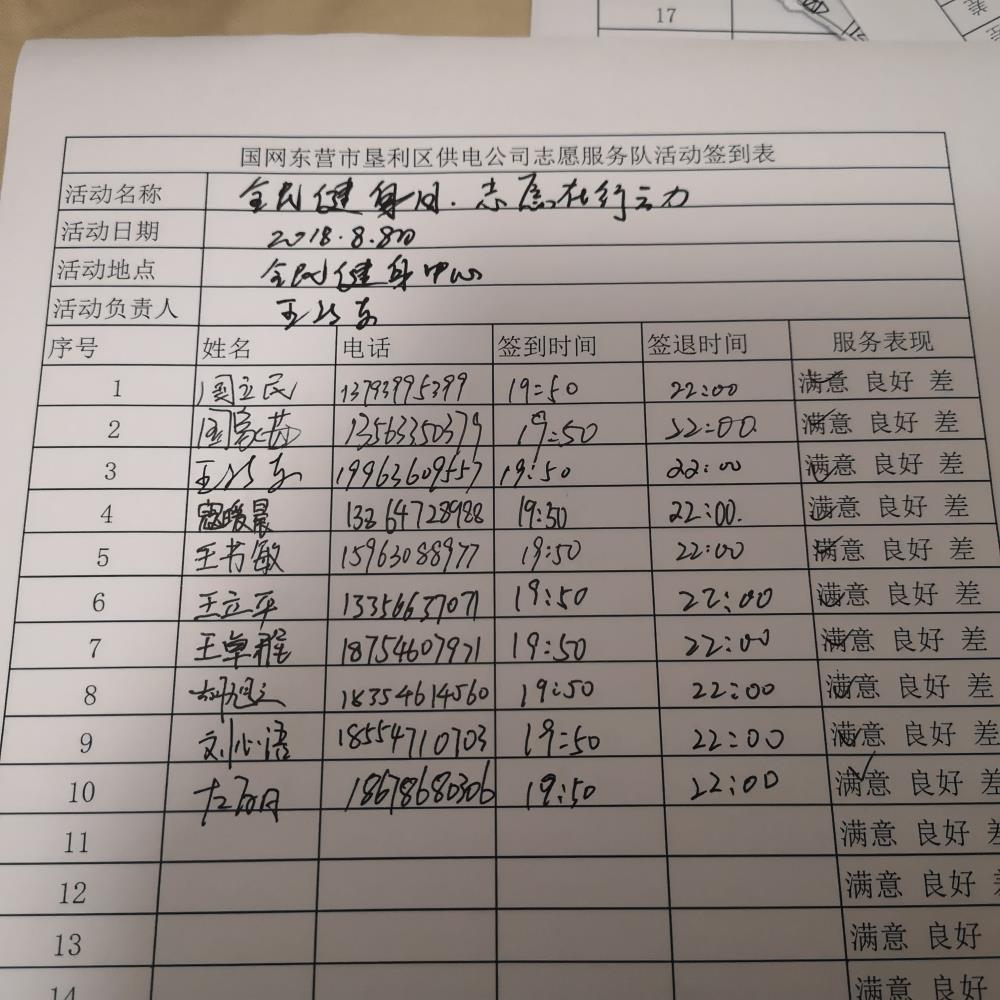 17
国网东营市垦利区供电公司志愿服务队活动签到表
活动名称 全民健身日.志愿在行动
活动日期 2018.8.8日
活动地点 全民健身中心
活动负责人
序号 姓名 电话 签到时间 签退时间 服务表现
1 周立民 13793995399 19:50 22:00 满意 良好 差
2 13563350379 19:50 22:00. 满意 良好 差
3 19963609557 19:50 22:00 满意 良好 差
4 13264728988 19:50 22:00. 满意 良好 差
5 王书敏 15963088977 19:50 22:00 满意 良好 差
6 王立平 13356637071 19:50 22:00 满意 良好 差
7 王卓程 18754607971 19:50 22:00 满意 良好 差
8 胡旭之 18354614560 19:50 22:00 满意 良好 差
9 刘心语 18554710703 19:50 22:00 满意 良好 差
10 18678680306 19:50 22:00 满意 良好 差
11 满意 良好 差
12 满意 良好
13 满意 良好
14 满意 良好